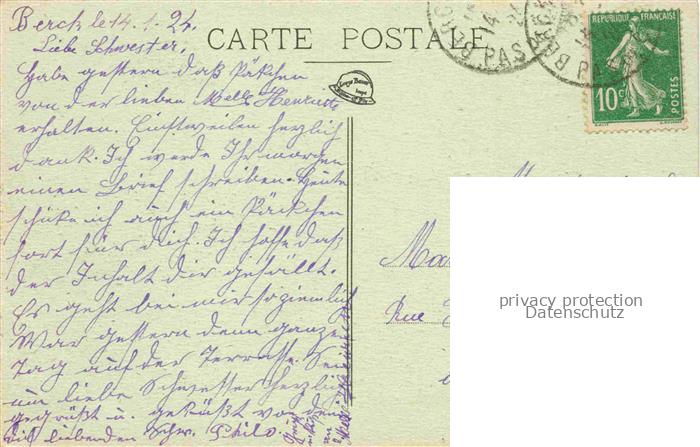 Berck le 14.1.24.
Liebe Schwester,
Habe gestern das Päkchen
von der lieben Melle Henriette
erhalten. Einstweilen herzlich
dank. Ich werde Ihr morgen
einen Brief schreiben. Heute
schike ich auch ein Päkchen
fort für dich. Ich hoffe daß
der Inhalt dir gefällt.
Es geht bei mir so ziemlich
War gestern den ganzen
Tag auf der Terrasse. Sei
nun liebe Schwester herzlich
gegrüßt u. geküßt von dem
dich liebenden Schw.
Melle Henriette
CARTE POSTALE
RÉPUBLIQUE FRANÇAISE
10c
POSTES
PAS
Rue
privacy protection
Datenschutz